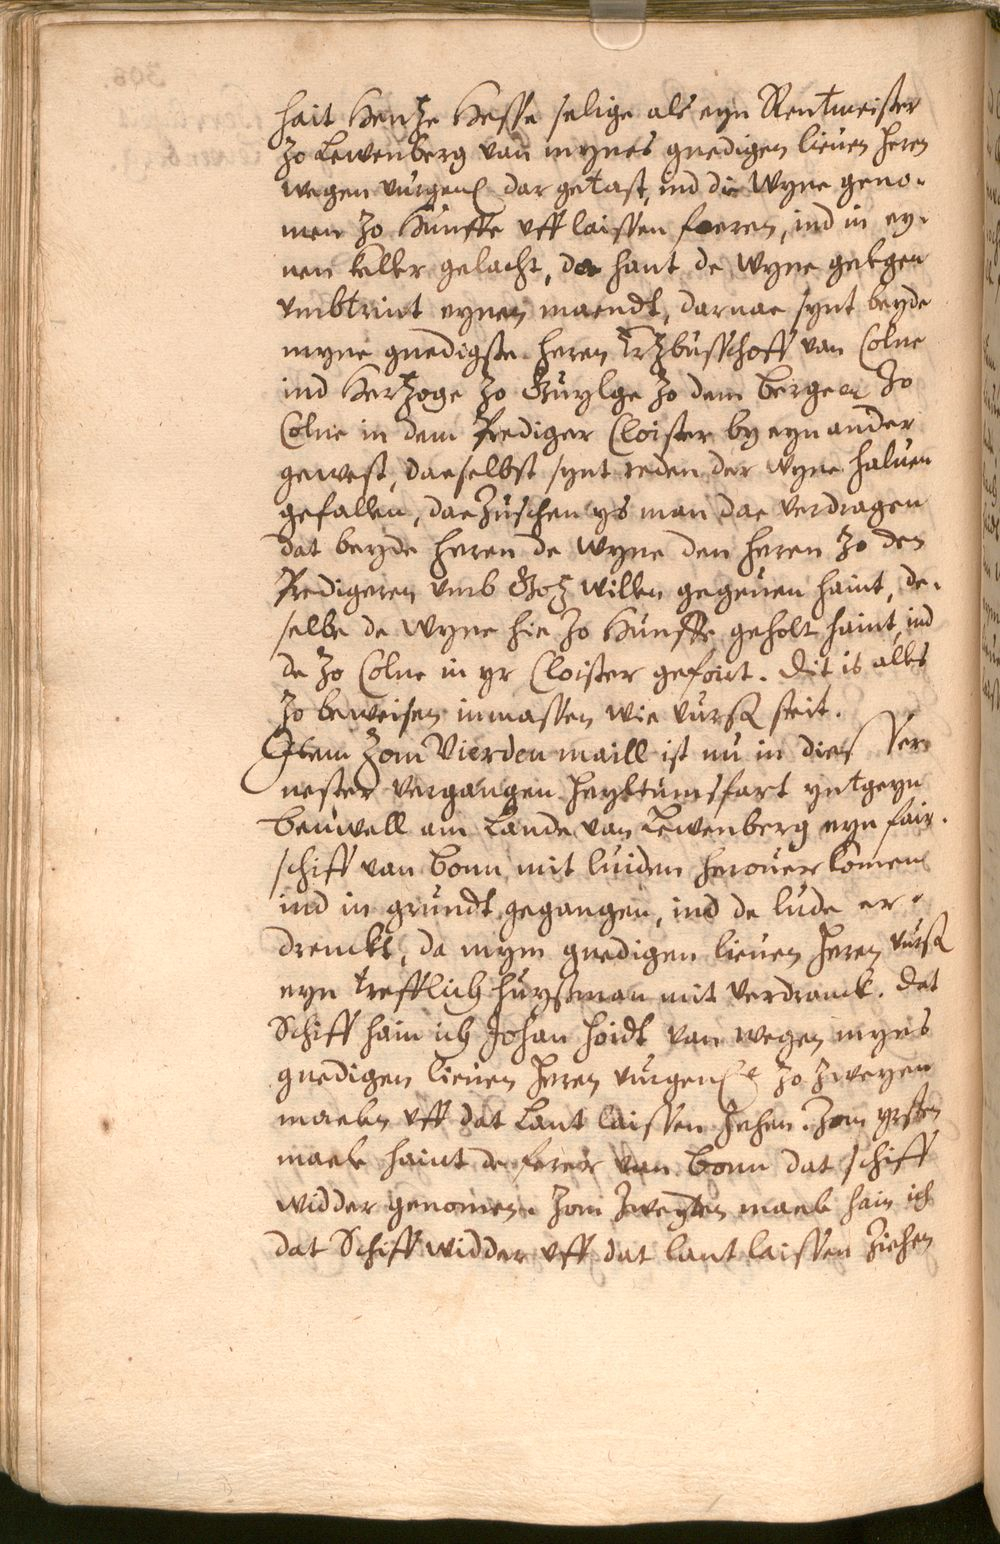 hait Hentze Hesse selige als eyn Rentmeister
zo Lewenberg van mynes gnedigen lieuen heren
wegen vurgen(anten) dar getast, ind die Wyne geno-
men zo Hunffe vff laissen foeren, ind in ey-
nen keller gelacht, da hant de Wyne gelegen
vmbtrint eynen maendt, darnae synt beyde
myne gnedigste heren Ertzbusschoff van Colne
ind Hertzoge zo Guylge zo dem berge zo
Colne in dem Prediger Cloister by eynander
gewest, daeselbst synt reden der wyne haluen
gefallen, daezuschen ys man dae verdragen
dat beyde heren de wyne den heren zo den
Predigeren vmb Gotz willen gegeuen haint, de-
selbe de wyne hie zo Hunffe geholt haint, ind
de zo Colne in yr Cloister gefoirt. Dit is alles
zo beweisen inmassen wie vurß steit.
Item zom Vierden maill ist nu in dies ser
nester vergangen heyltumsfart yntgeyn
beuwell am Lande van Lewenberg eyn fair-
schiff van Bonn mit luiden herouer komen
ind in grundt gegangen, ind de lude er-
drenckt, da mym gnedigen lieuen heren vurß
eyn trefflich huyßman mit verdranck. Dat
Schiff hain ich Johan hoidt van wegen myns
gnedigen lieuen heren vurgen zo zweyen
maelen vff dat Lant laissen zehen. Zom yrsten
maele haint de ferer van Bonn dat schiff
widder genomen. Zom zweyten maele hain ich
dat Schiff widder vff dat lant laissen ziehen